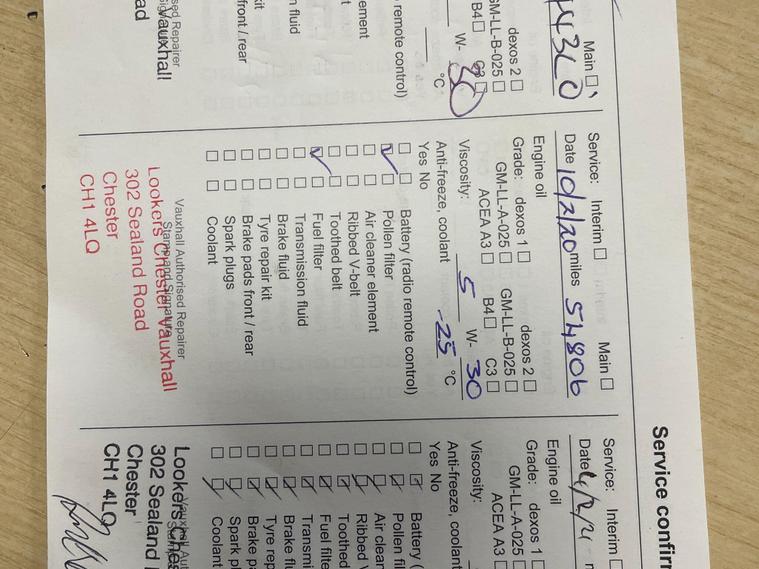 Service confir
Main ☐
43L0
dexos 2 ☐
GM-LL-B-025 ☐
B4 ☐ C3 ☐
W- 30
°C
remote control)
ement
n fluid
kit
front / rear
sed Repairer
Vauxhall
ad
Service: Interim ☐ Main ☐
Date 10/2/20 miles 54806
Engine oil
Grade: dexos 1 ☐ dexos 2 ☐
GM-LL-A-025 ☐ GM-LL-B-025 ☐
ACEA A3 ☐ B4 ☐ C3 ☐
Viscosity: 5 W- 30
Anti-freeze, coolant -25 °C
Yes No
Battery (radio remote control)
Pollen filter
Air cleaner element
Ribbed V-belt
Toothed belt
Fuel filter
Transmission fluid
Brake fluid
Tyre repair kit
Brake pads front / rear
Spark plugs
Coolant
Vauxhall Authorised Repairer
Stamp and Signature
Lookers Chester Vauxhall
302 Sealand Road
Chester
CH1 4LQ
Service: Interim ☐
Date
Engine oil
Grade: dexos 1 ☐
GM-LL-A-025 ☐
ACEA A3 ☐
Viscosity:
Anti-freeze, coolant
Yes No
Battery (
Pollen fil
Air clean
Ribbed V
Toothed
Fuel filte
Transmi
Brake fl
Tyre rep
Brake p
Spark pl
Coolant
Vauxhall Aut
Lookers Ches
302 Sealand
Chester
CH1 4LQ